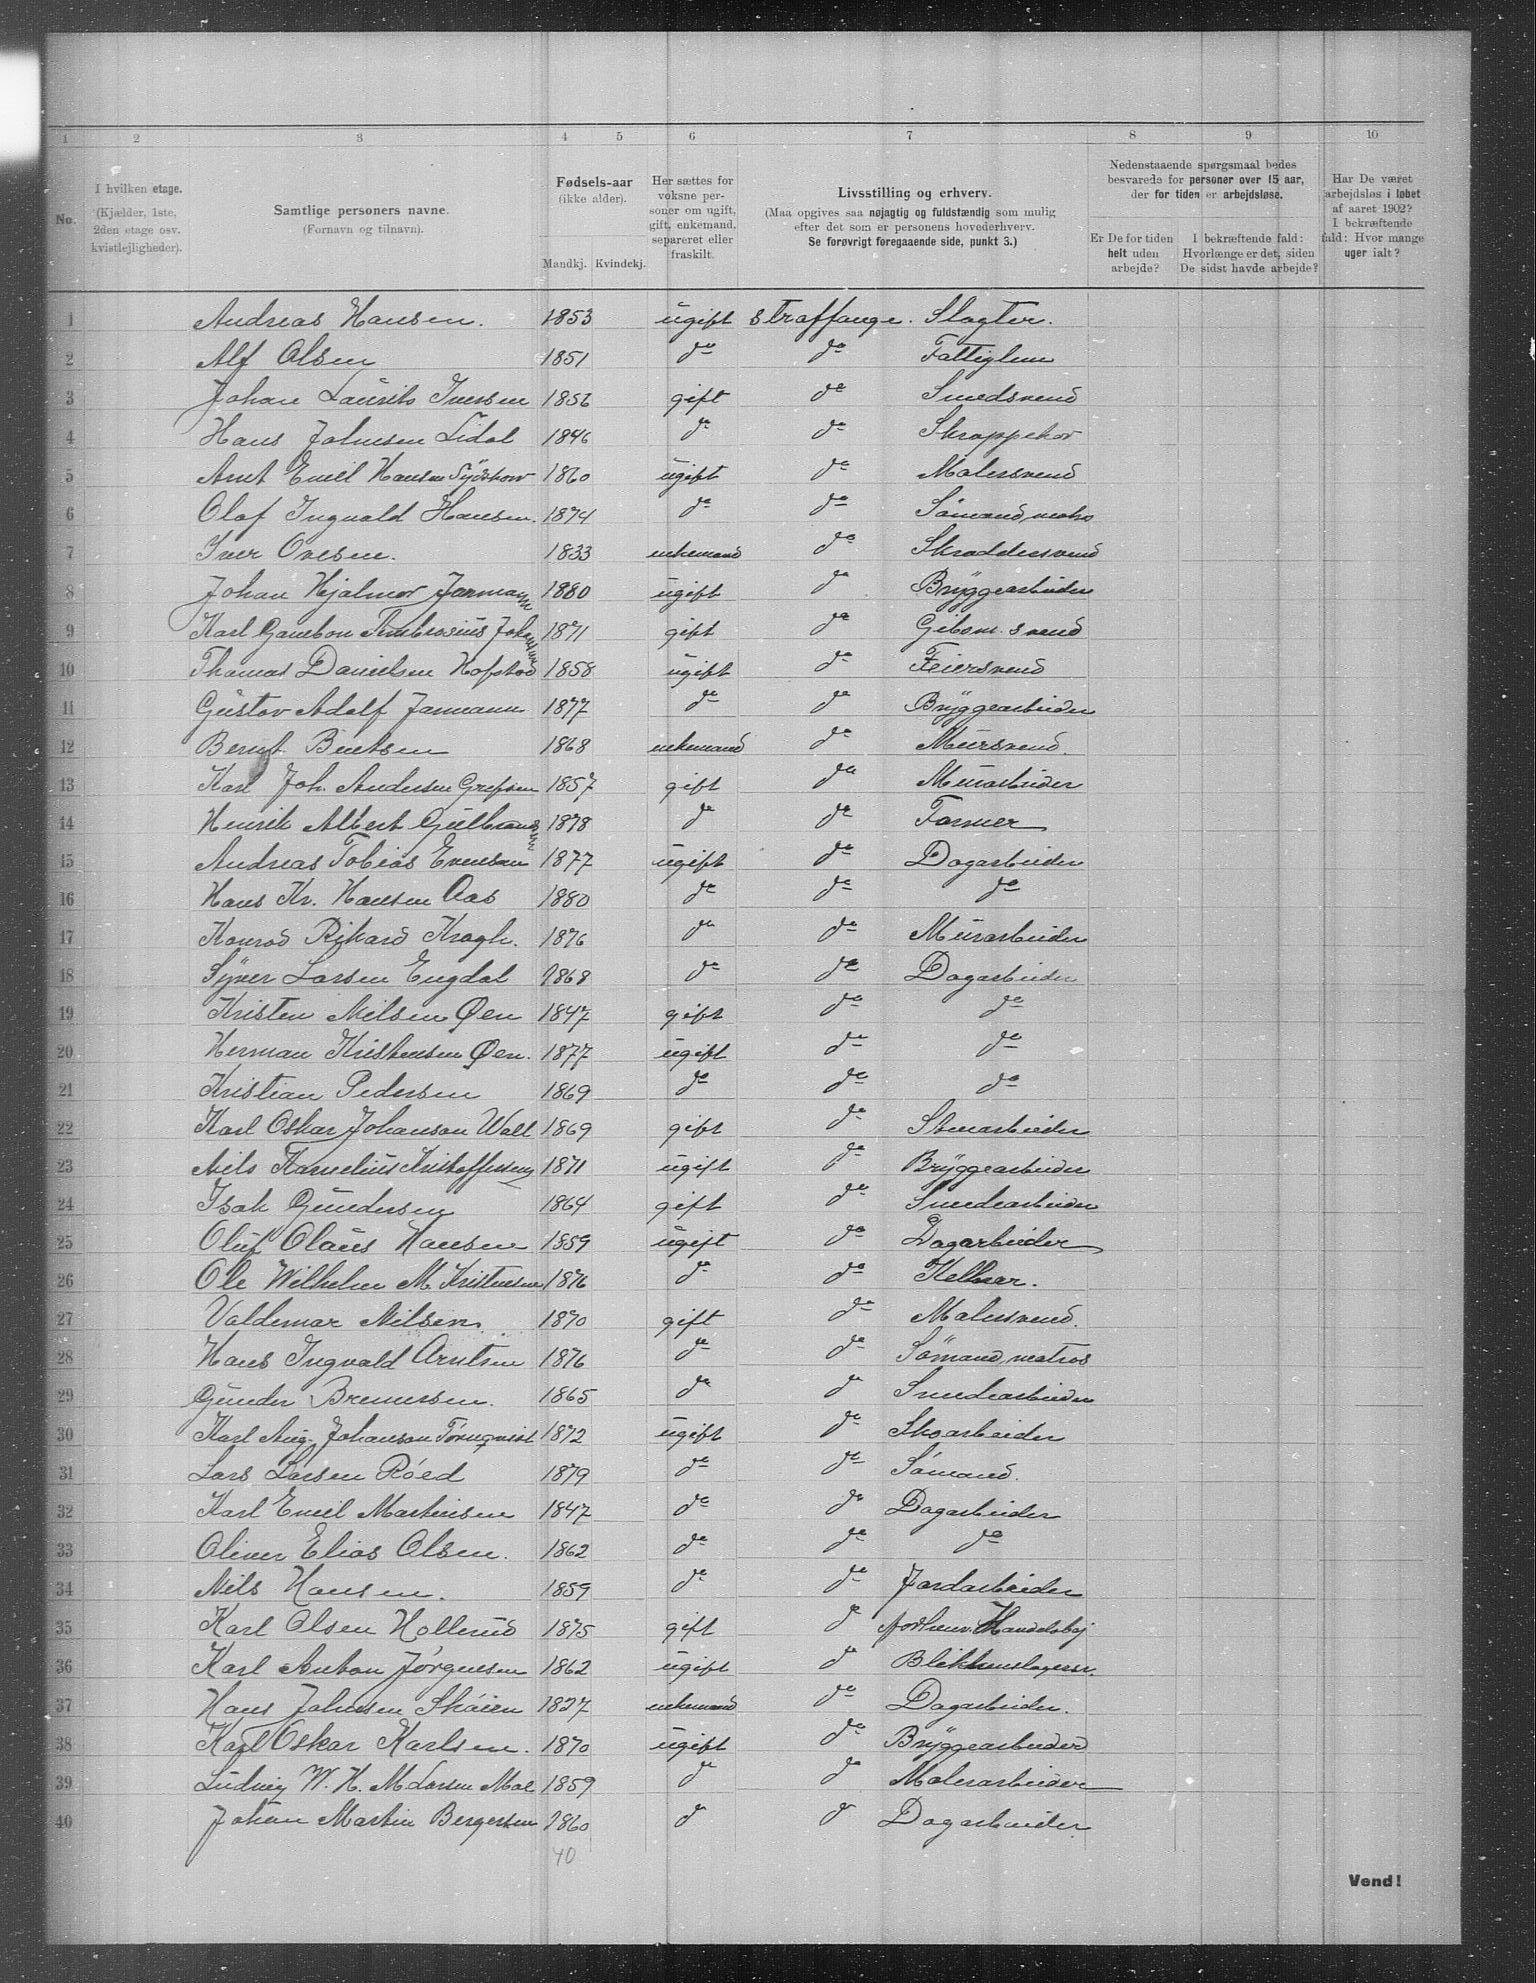 1 2 3 4 5 6 7 8 9 10
No. I hvilken etage. (Kjælder, 1ste, 2den etage osv. kvistlejligheder).
Samtlige personers navne. (Fornavn og tilnavn).
Fødsels-aar (ikke alder). Mandkj. Kvindekj.
Her sættes for voksne personer om ugift, gift, enkemand, separeret eller fraskilt.
Livsstilling og erhverv. (Maa opgives saa nøjagtig og fuldstændig som mulig efter det som er personens hovederhverv. Se forøvrigt foregaaende side, punkt 3.)
Nedenstaaende spørgsmaal bedes besvarede for personer over 15 aar, der for tiden er arbejdsløse.
Er De for tiden helt uden arbejde?
I bekræftende fald: Hvorlænge er det, siden De sidst havde arbejde?
Har De været arbejdsløs i løbet af aaret 1902? I bekræftende fald: Hvor mange uger ialt?
1 Andreas Hansen. 1853 ugift straffange. Slagter.
2 Alf Olsen 1851 do do Fattiglem
3 Johan Laurits Iversen 1856 gift do Smedsvend
4 Hans Johnsen Lidal 1846 do do Skrappehor
5 Arnt Emil Hansen 1860 ugift do Malersvend
6 Olaf Ingvald Hansen. 1874 do do Sömand, matros
7 Iver Ovesen. 1833 enkemand do Skraddersvend
8 Johan Hjalmar Jarmann 1880 ugift do Bryggearbeider
9 Karl Gambon Ambrosius Johansen 1871 gift do Gibsm. svend
10 Thomas Danielsen Hofstad 1858 ugift do Feiersvend
11 Gustav Adolf Jarmann 1877 do do Bryggearbeider
12 Bernt Berntsen 1868 enkemand do Mursvend.
13 Karl Joh. Andersen Grefsen 1857 gift do Murarbeider
14 Henrik Albert Gulbrandsen 1878 do do Former
15 Andreas Tobias Evensen 1877 ugift do Dagarbeider
16 Hans Kr. Hansen Aas 1880 do do do
17 Konrad Rikard Kragh. 1876 do do Murarbeider
18 Syver Larsen Engdal 1868 do do Dagarbeider
19 Kristen Nilsen Øen 1847 gift do do
20 Herman Kristensen Øen. 1877 ugift do do
21 Kristian Pedersen 1869 do do do
22 Karl Oskar Johansen Wall 1869 gift do Stenarbeider
23 Nils Kornelius Kristoffersen 1871 ugift do Bryggearbeider
24 Isak Gundersen 1864 gift do Smedearbeider
25 Oluf Olaus Hansen 1859 ugift do Dagarbeider
26 Ole Wilhelm M. Kristensen 1876 do do Kelner.
27 Valdemar Nilsen 1870 gift do Malersvend.
28 Hans Ingvald Arntsen 1876 do do Sömand, matros
29 Gunder Bremersen. 1865 do do Smedearbeider
30 Karl Aug. Johansen Törnqvist 1872 ugift do Skoarbeider
31 Lars Larsen Röed 1879 do do Sömand.
32 Karl Emil Martinsen 1847 do do Dagarbeider
33 Oliver Elias Olsen. 1862 do do do
34 Nils Hansen. 1859 do do Jordarbeider
35 Karl Olsen Hollerud 1875 gift do Handelsbj
36 Karl Anton Jørgensen 1862 ugift do Blikkenslagersv.
37 Hans Johnsen Skåien 1827 enkemand do Dagarbeider.
38 Karl Oskar Karlsen. 1870 ugift do Bryggearbeider
39 Ludvig W. H. M. Larsen Moe 1859 do do Malerarbeider
40 Johan Martin Bergersen 1860 do do Dagarbeider.
40
Vend!